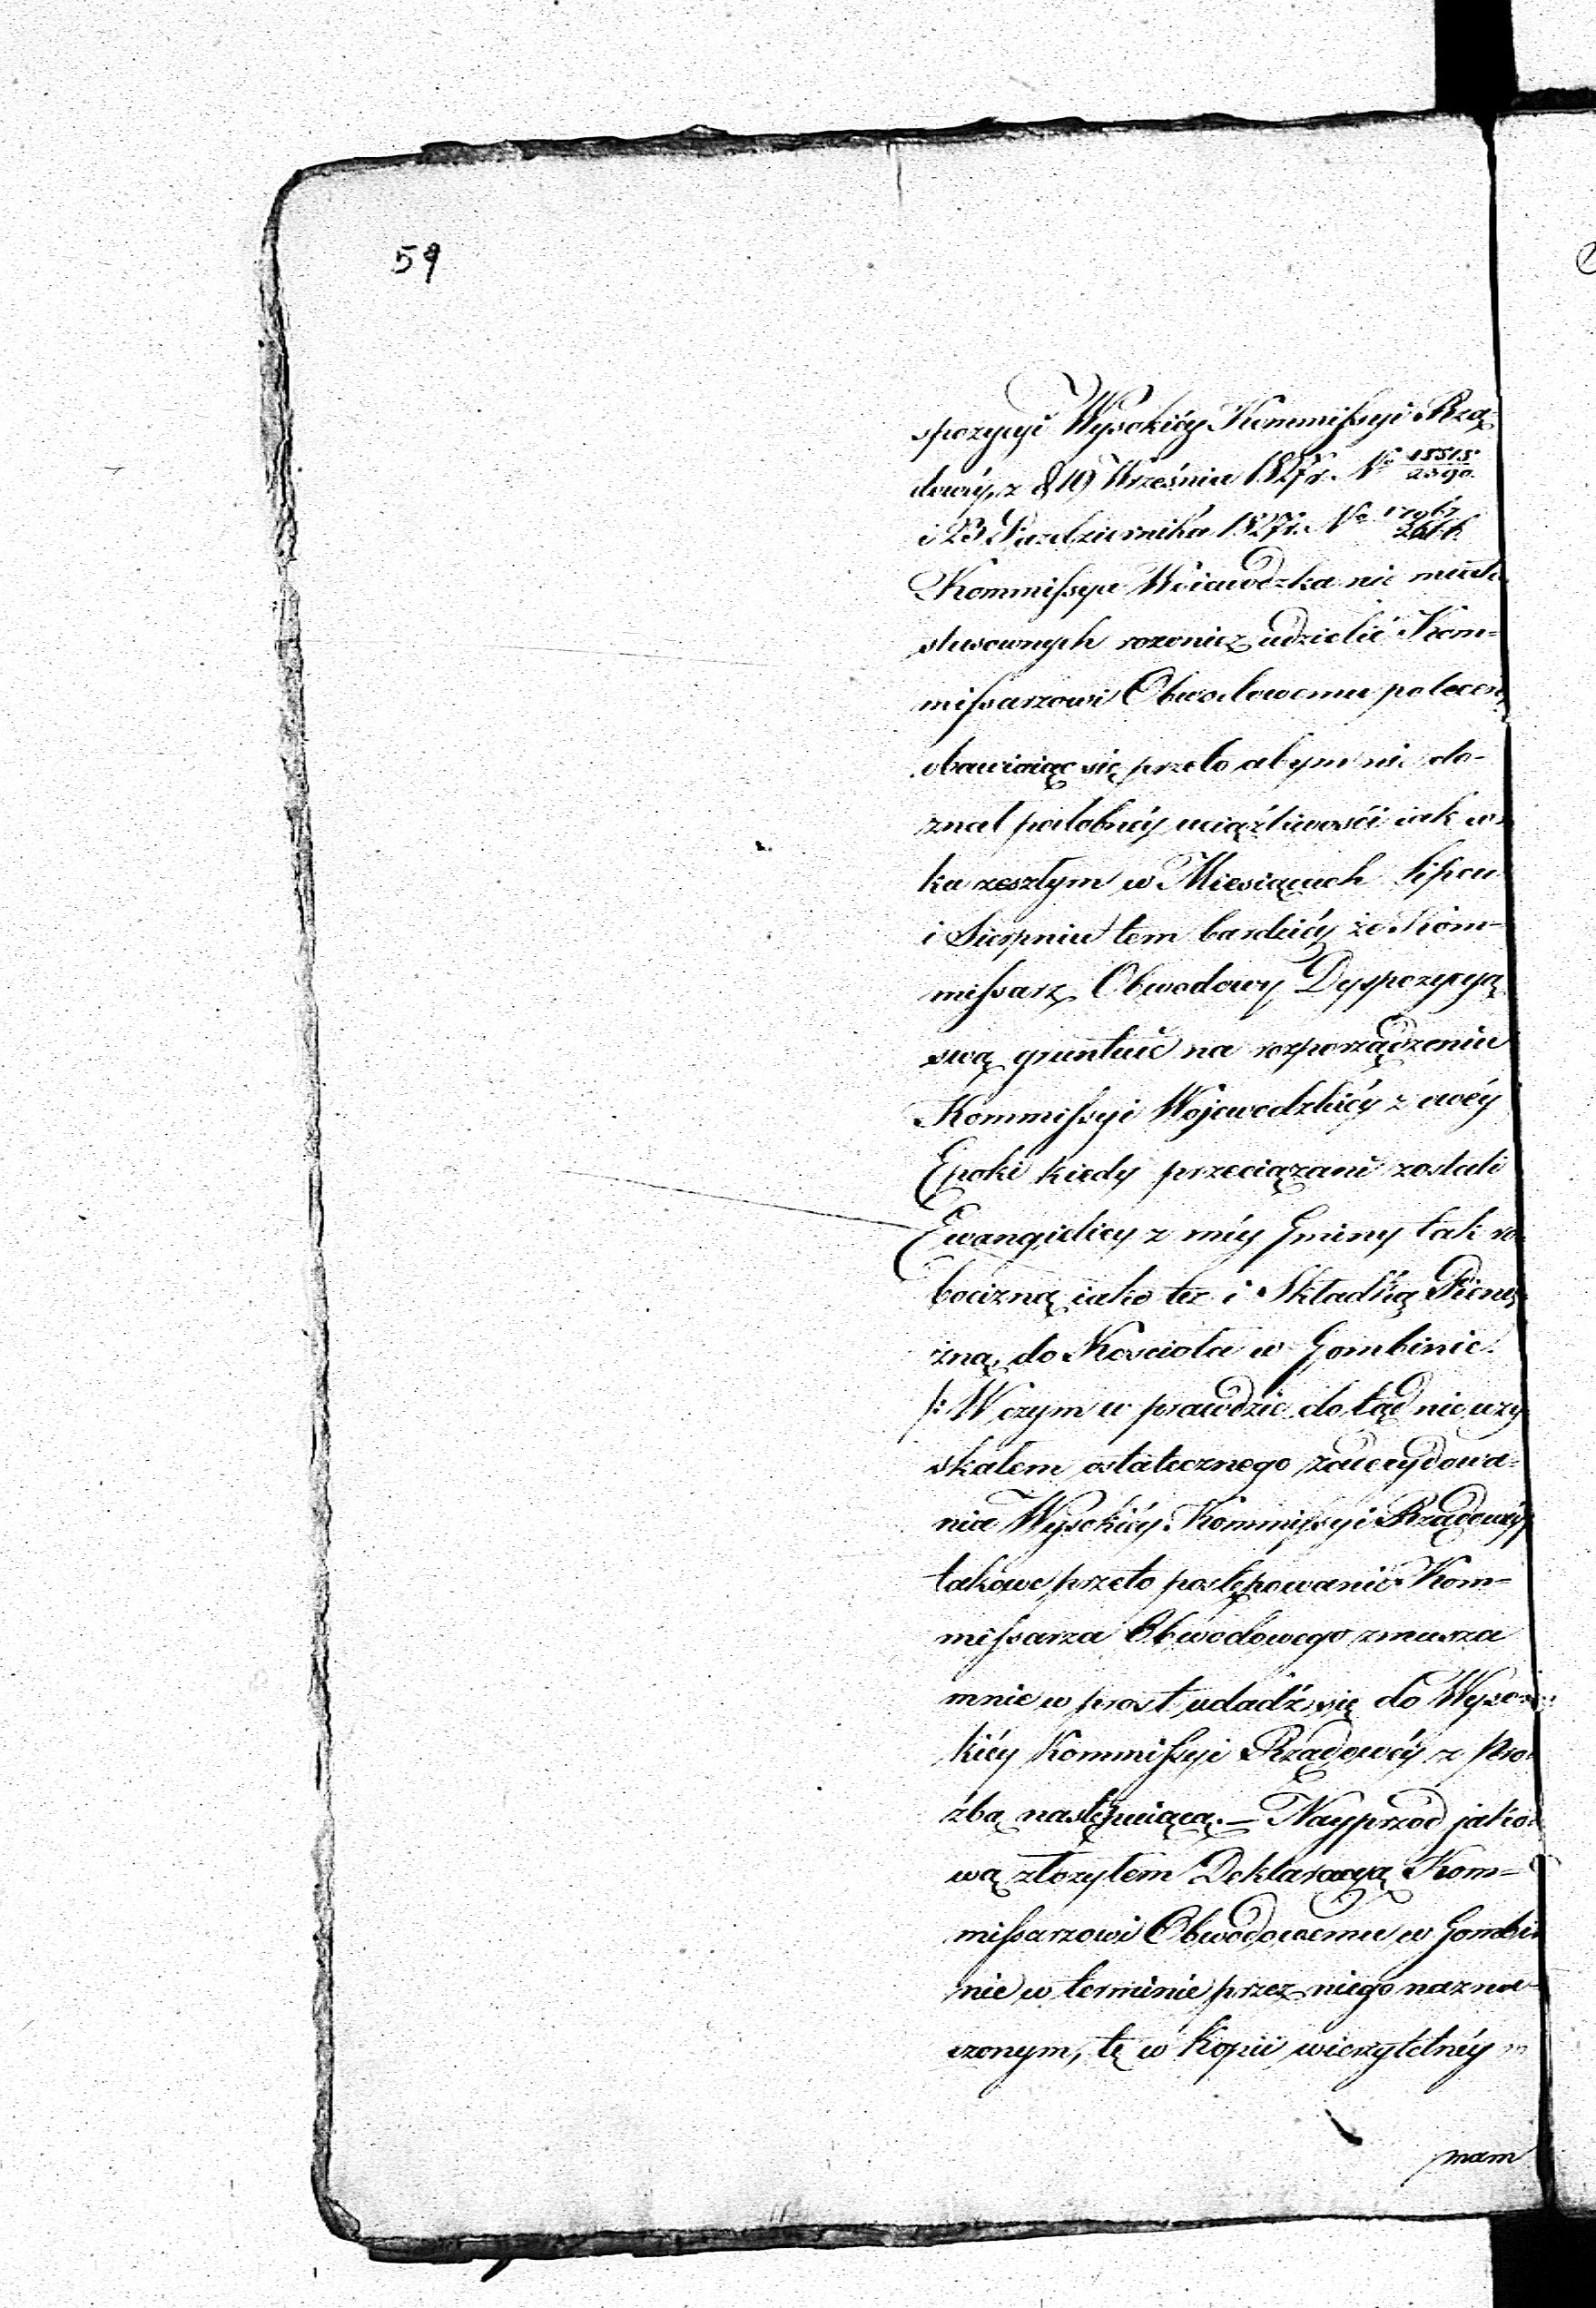 59
spozycyi Wysokiéy Kommissyi Rzą-
dowéy z d 19 Września 1827 r. No 15515/2590.
i 23 Pazdziernika 1827 r. No 17967
Kommissya Woiewodzka nie miała
stosownych udzielić Kom-
missarzowi Obwodowemu poleceń,
obawiaiąc się przeto abym nie do-
znał podobnéy uciążliwości iak w ro-
ku zeszłym w Miesiącach Lipcu
i Sierpniu tem bardziéy że Kom-
missarz Obwodowy Dyspozycyą
swą gruntuie na rozporządzeniu
Kommissyi Wojewodzkiéy z owéy
Epoki kiedy przeciązani zostali
Ewangielicy z méy Gminy tak ro-
bocizną iako też i Składką Pienię-
żną, do Kościoła w Gombinie.
/: W czym w prawdzie do tąd nie uzy-
skałem ostatecznego zadecydowa-
nia Wysokiéy Kommissyi Rządowéy
takowe przeto postępowanie Kom-
missarza Obwodowego zmusza
mnie w prost udadź się do Wyso-
kiéy Kommissyi Rządowéy z Pro-
źbą następuiącą. — Nayprzód jako-
wą złożyłem Deklaracyą Kom-
missarzowi Obwodowemu w Gombi-
nie w terminie przez niego nazna-
czonym, tę w Kopii wierzytelnéy
mam